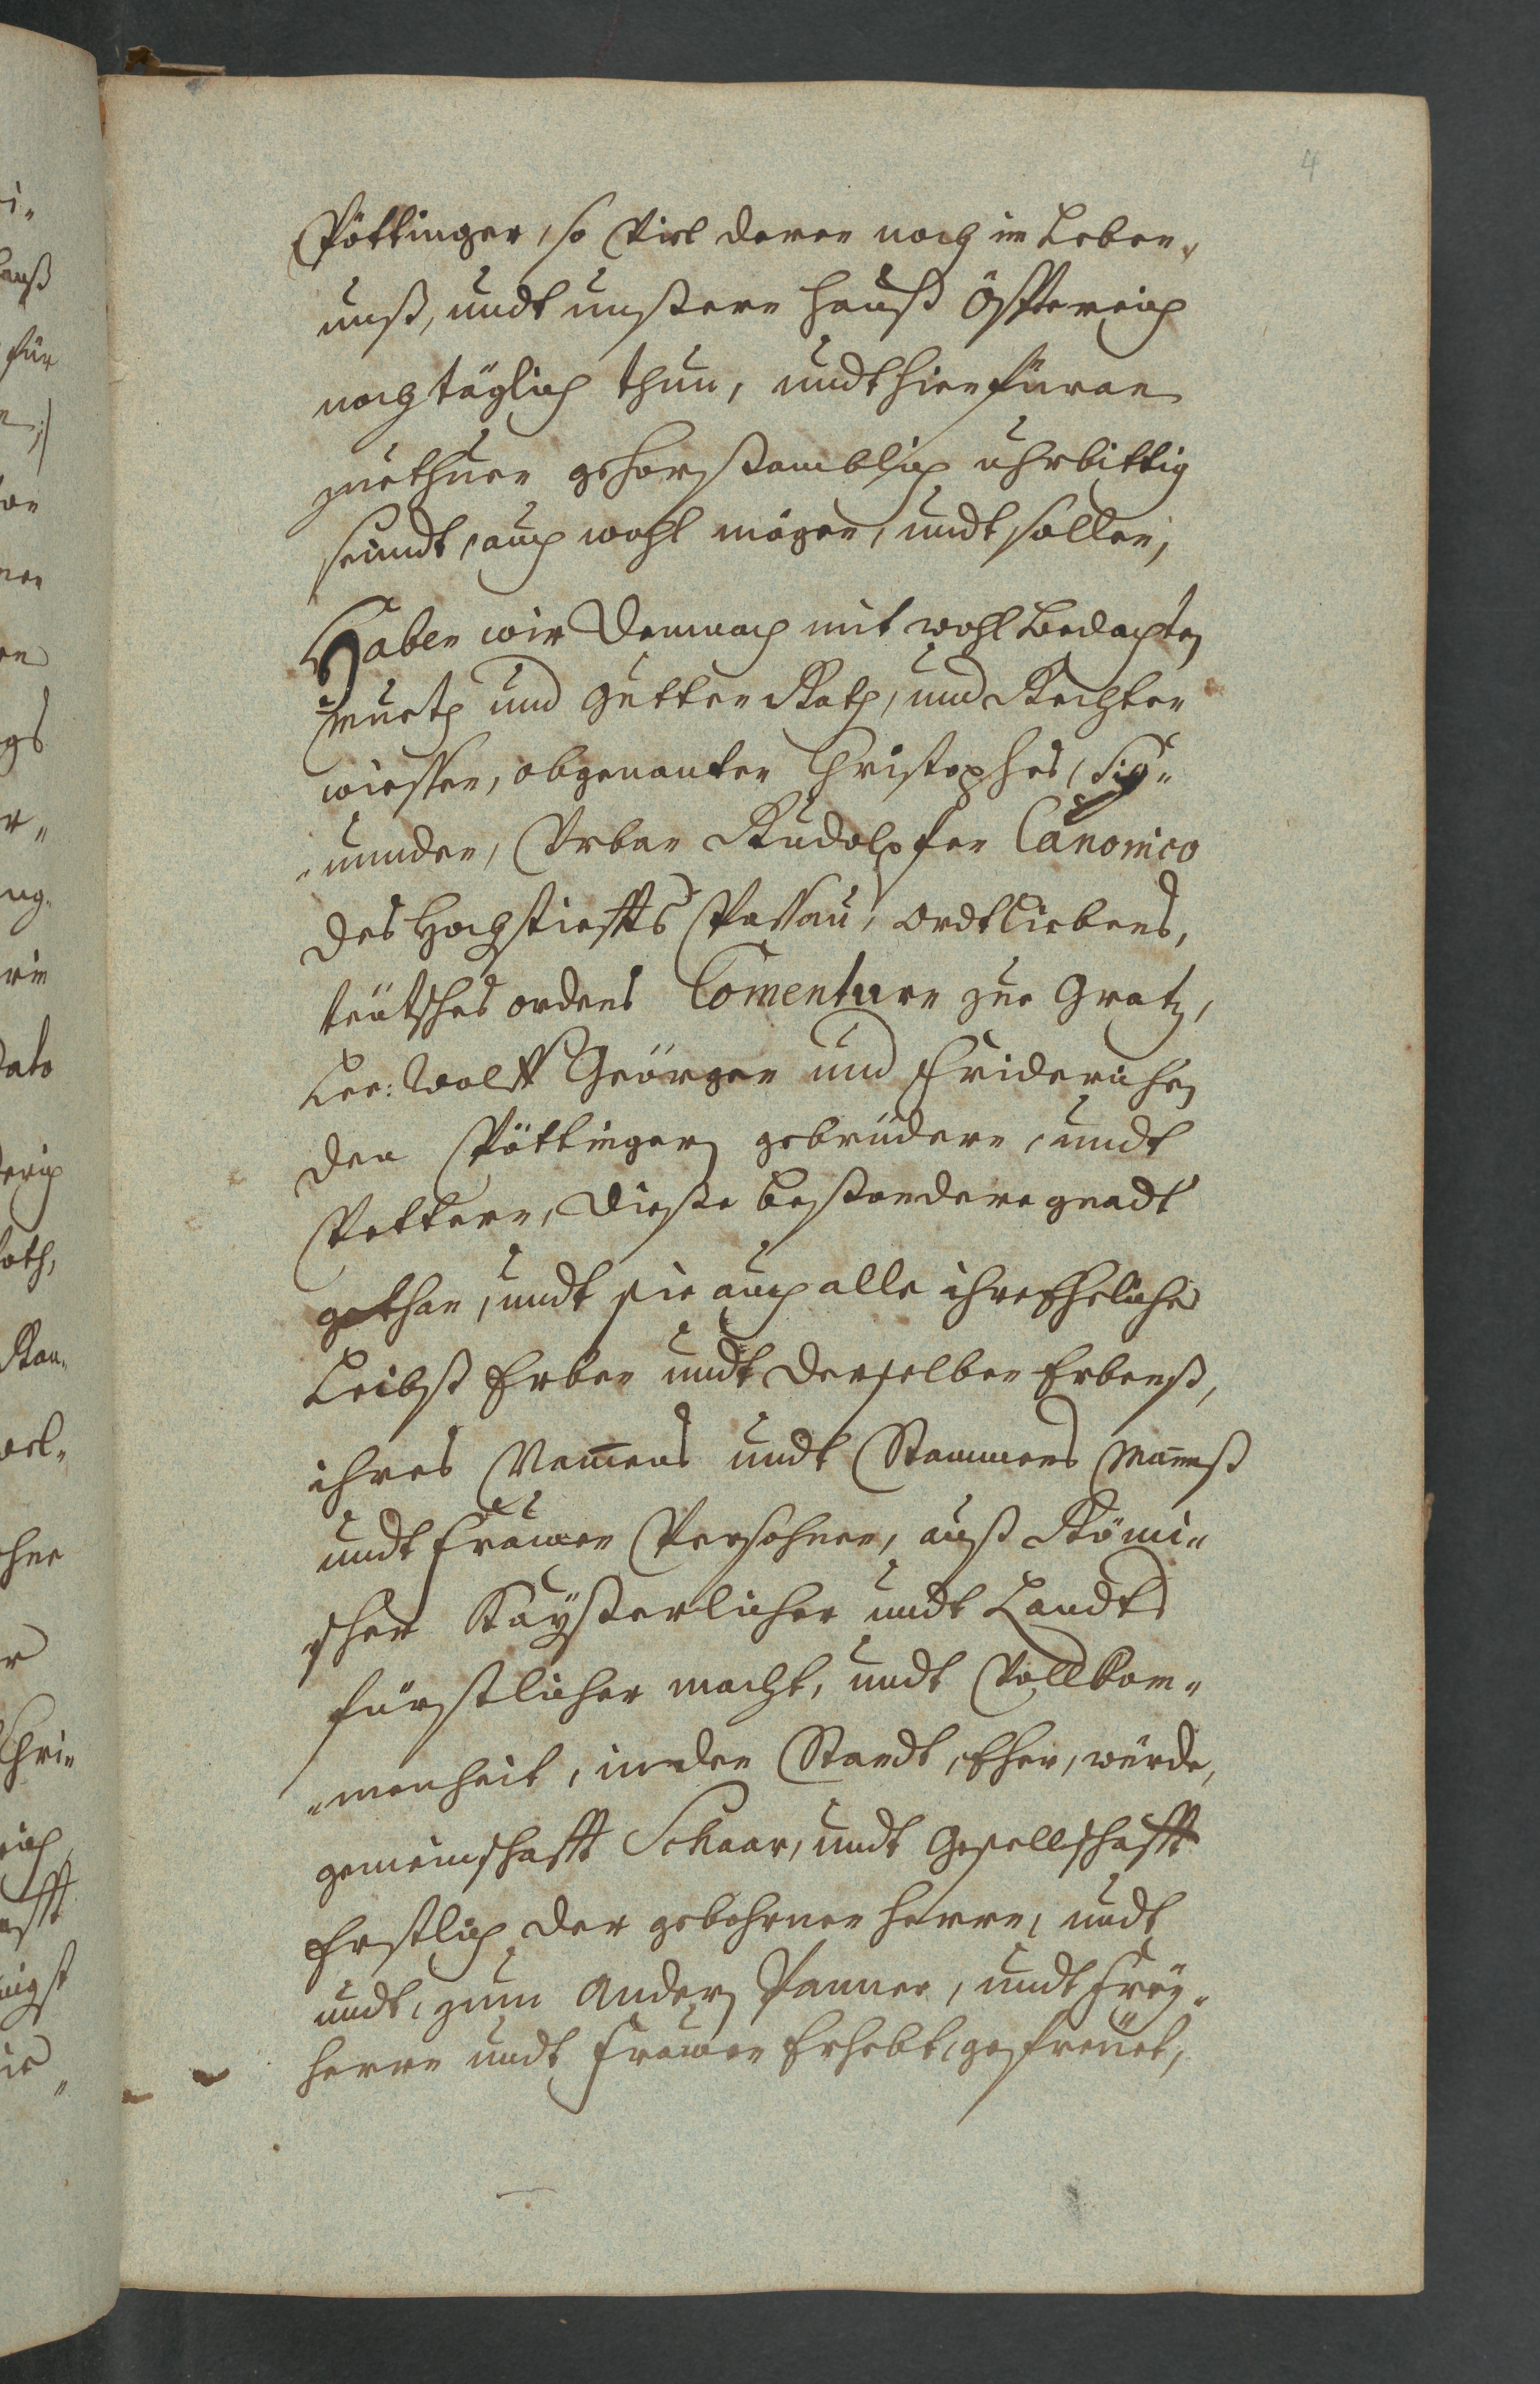 4
Pöttinger, so Viel deren noch im Leben,
unß, undt unßeren Hauß Össtereich
noch täglich thun, undt hienfüran
zuethuen gehorßamblich uhrbittig
seindt, auch wohl mögen, undt sollen,
Haben wir Demnach mit wohl bedachten
Mueth und Gutten Rath, und Rechten
wiessen, obgenanten Christophes, Sig„
„munden, Urban Rudolpfen Canonico
des Hochstieffts Passau, Ordtliebens,
teütsches ordens Comenturn zue Gratz,
Wolff Geörgen und Friderichen
den Pöttingern gebrüdern, undt
Vettern, Dieße beßondere gnadt
gethan, undt sie auch alle ihre Eheliche
Leibß Erben undt derselben Erbenß,
ihres Namens undt Stammens Manß
undt Frauen Persohnen, auß Römi„
scher Kayßerlicher undt Landts
fürstlicher macht, undt Vollkom„
„menheit, in den Standt, Ehre, würde,
gemeinschafft Schaar, undt Gesellschafft
Erstlich der gebohrnen Herrn, undt
undt, zum Andern Panner, undt Frey„
herrn undt Frauen Erhebt, gefreüet,